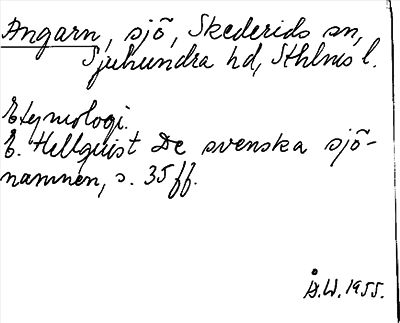 Angarn, sjö, Skederids sn,
Sjuhundra hd, Sthlms l.
Etymologi.
E. Hellquist De svenska sjö-
namnen, s. 35 ff.
Å.W. 1955.